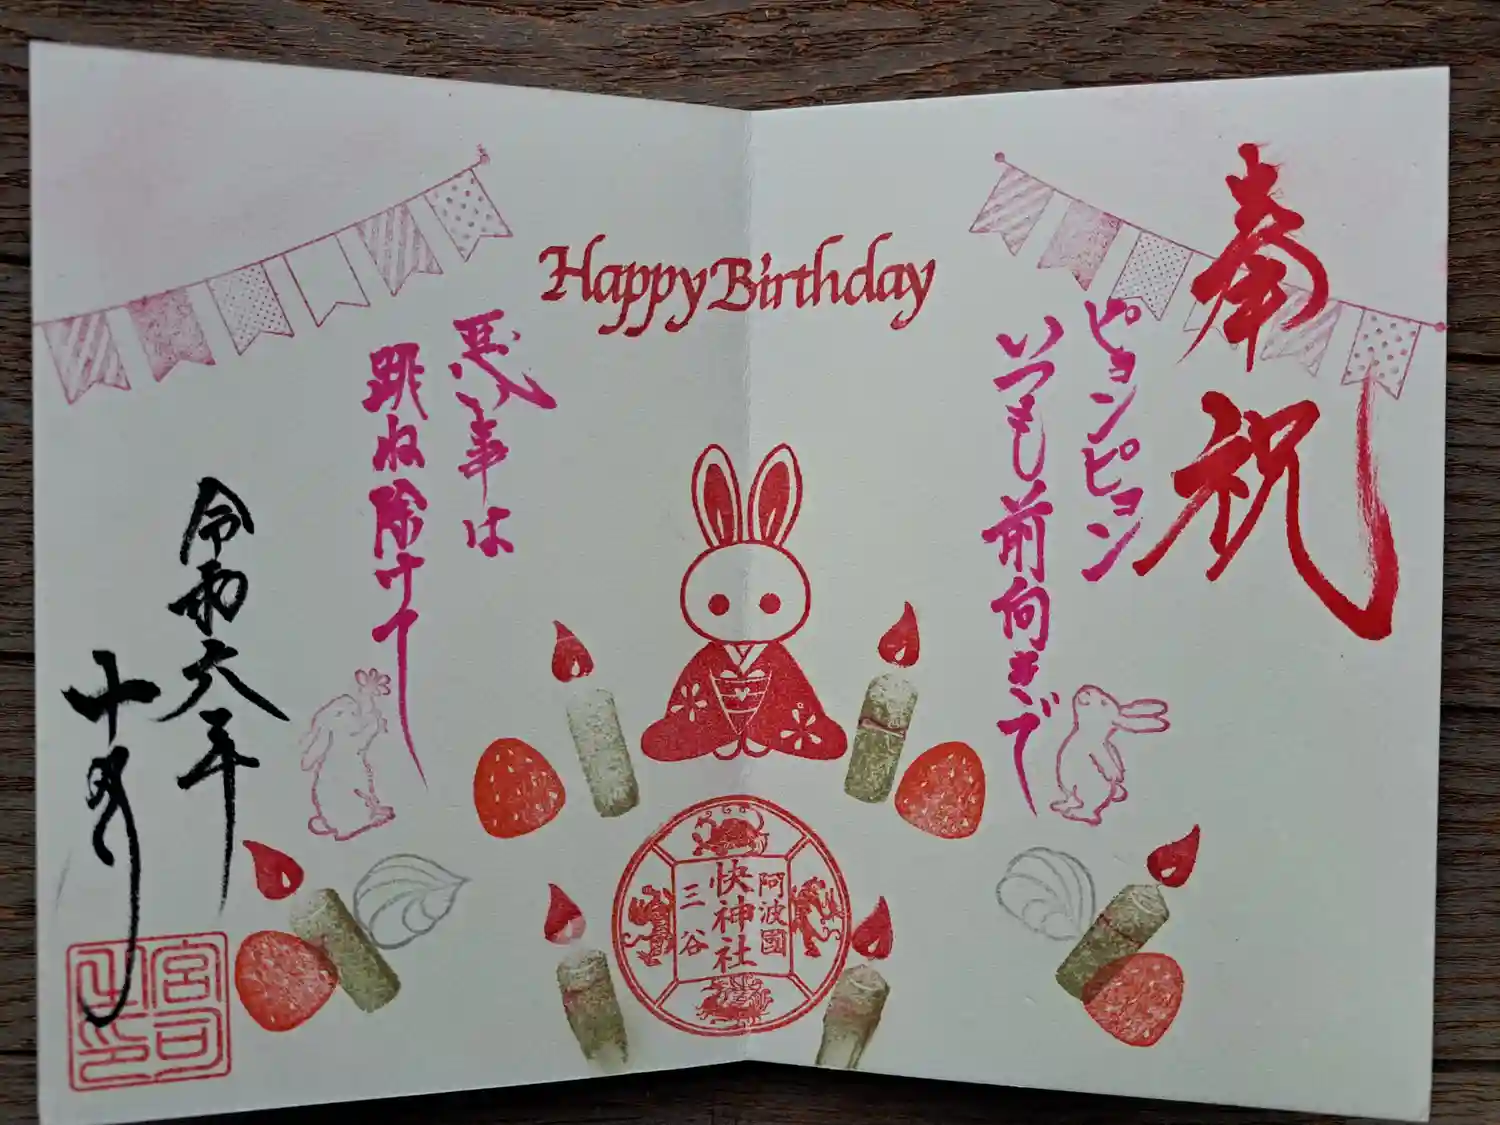 Happy Birthday
奉祝
ピョンピョン
いつも前向きで
悪い事は
跳ね除けて
令和六年
十月
阿波國
快神社
三谷
宮司之印